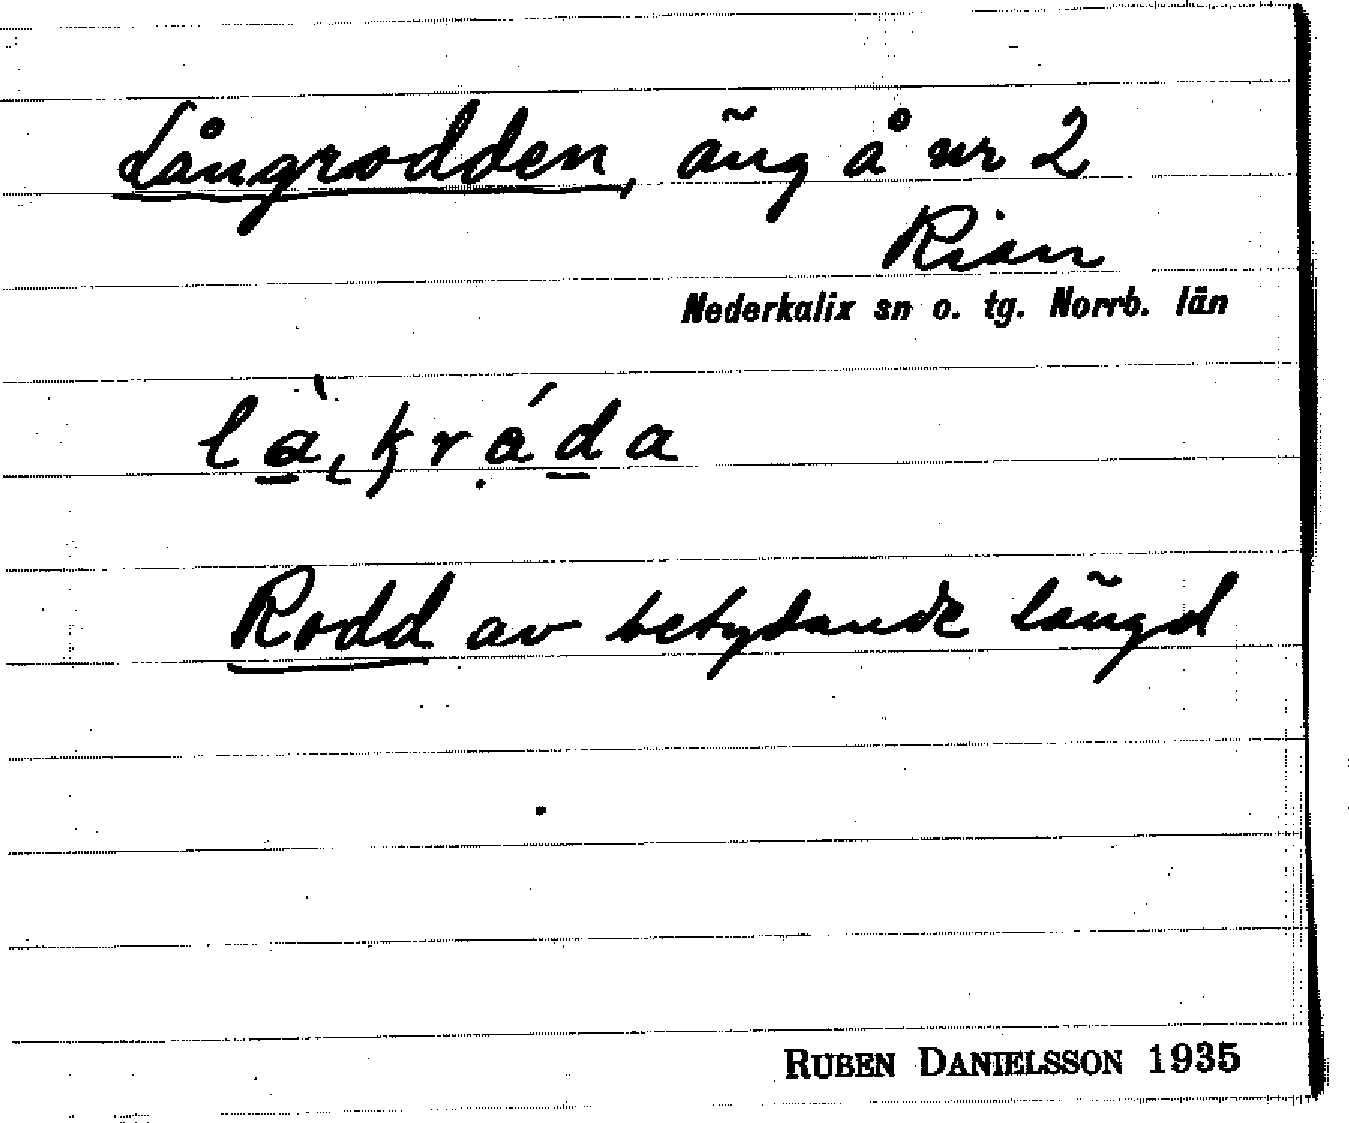 Långrodden, äng å nr 2
Rian
Nederkalix sn o. tg. Norrb. län
Rodd av betydande längd
RUBEN DANIELSSON 1935